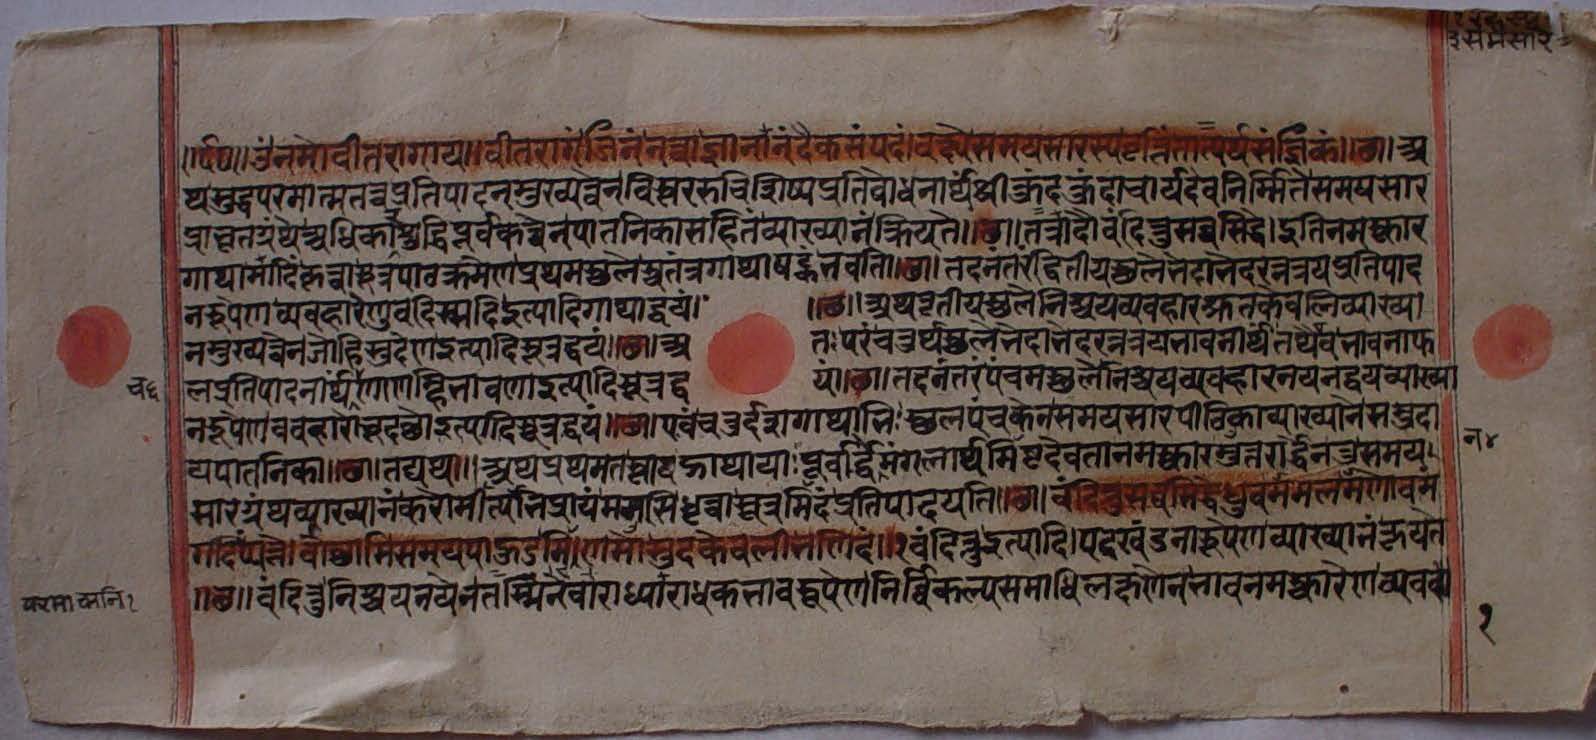 समैसार
॥र्ष॥ उं नमो वीतरागाय॥ वीतरागं जिनं नत्वा ज्ञानानंदैकसंपदं। वक्ष्ये समयसारस्य वृत्तिं तात्पर्यसंज्ञिकं॥छ॥ अ
थ सुद्धपरमात्मतत्वप्रतिपादनमुख्यत्वेन विस्तररुचिशिष्यप्रतिबोधनार्थं श्रीकुंदकुंदाचार्यदेवनिर्म्मिते समयसार
प्राभृतग्रंथे अधिकारशुद्धिपूर्वकत्वेन पातनिकासहितं व्याख्यानं क्रियते॥छ॥ तत्रादौ वंदित्तु सव्वसिद्धे। इति नमस्कार
गाथामादिं कृत्वा सूत्रपाठक्रमेण प्रथमस्थले स्वतंत्रगाथाषट्कं भवति॥छ॥ तदनंतरं द्वितीयस्थले भेदाभेदरत्नत्रयप्रतिपाद
नरूपेण ववहारेणुवदिस्सदि इत्यादिगाथाद्वयं। ॥छ॥ अथ तृतीयस्थले निश्चयव्यवहारश्रुतकेवलिव्याख्या
नमुख्यत्वेन जो हि सुदेण इत्यादिसूत्रद्वयं॥छ॥ अ तः परं चतुर्थस्थले भेदाभेदरत्नत्रयभावनार्थं तथैव भावनाफ
च६ लप्रतिपादनार्थं णाणम्हि भावणा इत्यादिसूत्रद्व यं॥छ॥ तदनंतरं पंचमस्थले निश्चयव्यवहारनयनद्वयव्याख्या
नरूपेण ववहारो भूदत्थो इत्यादिसूत्रद्वयं॥छ॥ एवं चतुर्दशगाथाभिः स्थलपंचकेन समयसारपीठिकाव्याख्याने समुदा
यपातनिका॥छ॥ तद्यथा॥ अथ प्रथमतस्तावद्गाथायाः पूर्वार्द्धे मंगलार्थमिष्टदेवतानमस्कारमुत्तरार्द्धेन तु समय न४
सारग्रंथव्याख्यानं करोमीत्यभिप्रायं मनसि धृत्वा सूत्रमिदं प्रतिपादयति॥छ॥ वंदित्तु सव्वसिद्धे धुवममलमणोवमं
गदिं पत्ते। वोच्छामि समयपाहुडमिणमो सुदकेवलीभणिदं॥१ वंदित्तु इत्यादि। पदखंडनारूपेण व्याख्यानं क्रियते
॥छ॥ वंदित्तु निश्चयनयेन तस्मिन्नेवाराध्याराधकभावरूपेण निर्विकल्पसमाधिलक्षणेन भावनमस्कारेण व्यवहा
परमात्मनि१
१